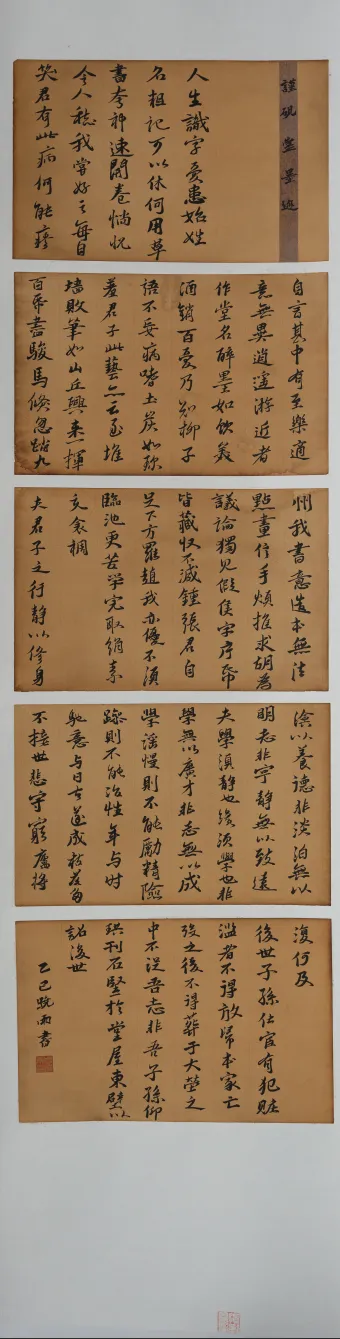 謹硯堂墨迹
人生識字憂患始姓
名粗記可以休何用草
書夸神速開卷惝怳
令人愁我嘗好之每自
笑君有此病何能瘳
自言其中有至樂適
意無異逍遙游近者
作堂名醉墨如飲美
酒銷百憂乃知柳子
語不妄病嗜土炭如珍
羞君子此藝亦云至堆
墻敗筆如山丘興來一揮
百紙盡駿馬倏忽踏九
州我書意造本無法
點畫信手煩推求胡為
議論獨見假隻字片紙
皆藏收不減鍾張君自
足下方羅趙我亦優不須
臨池更苦學完取絹素
充衾裯
夫君子之行靜以修身
儉以養德非淡泊無以
明志非寧靜無以致遠
夫學須靜也才須學也非
學無以廣才非志無以成
學淫慢則不能勵精險
躁則不能冶性年與時
馳意與日去遂成枯落多
不接世悲守窮廬將
復何及
後世子孫仕宦有犯贓
濫者不得放歸本家亡
歿之後不得葬于大塋之
中不從吾志非吾子孫仰
珙刊石豎於堂屋東壁以
詔後世
乙巳 雨書